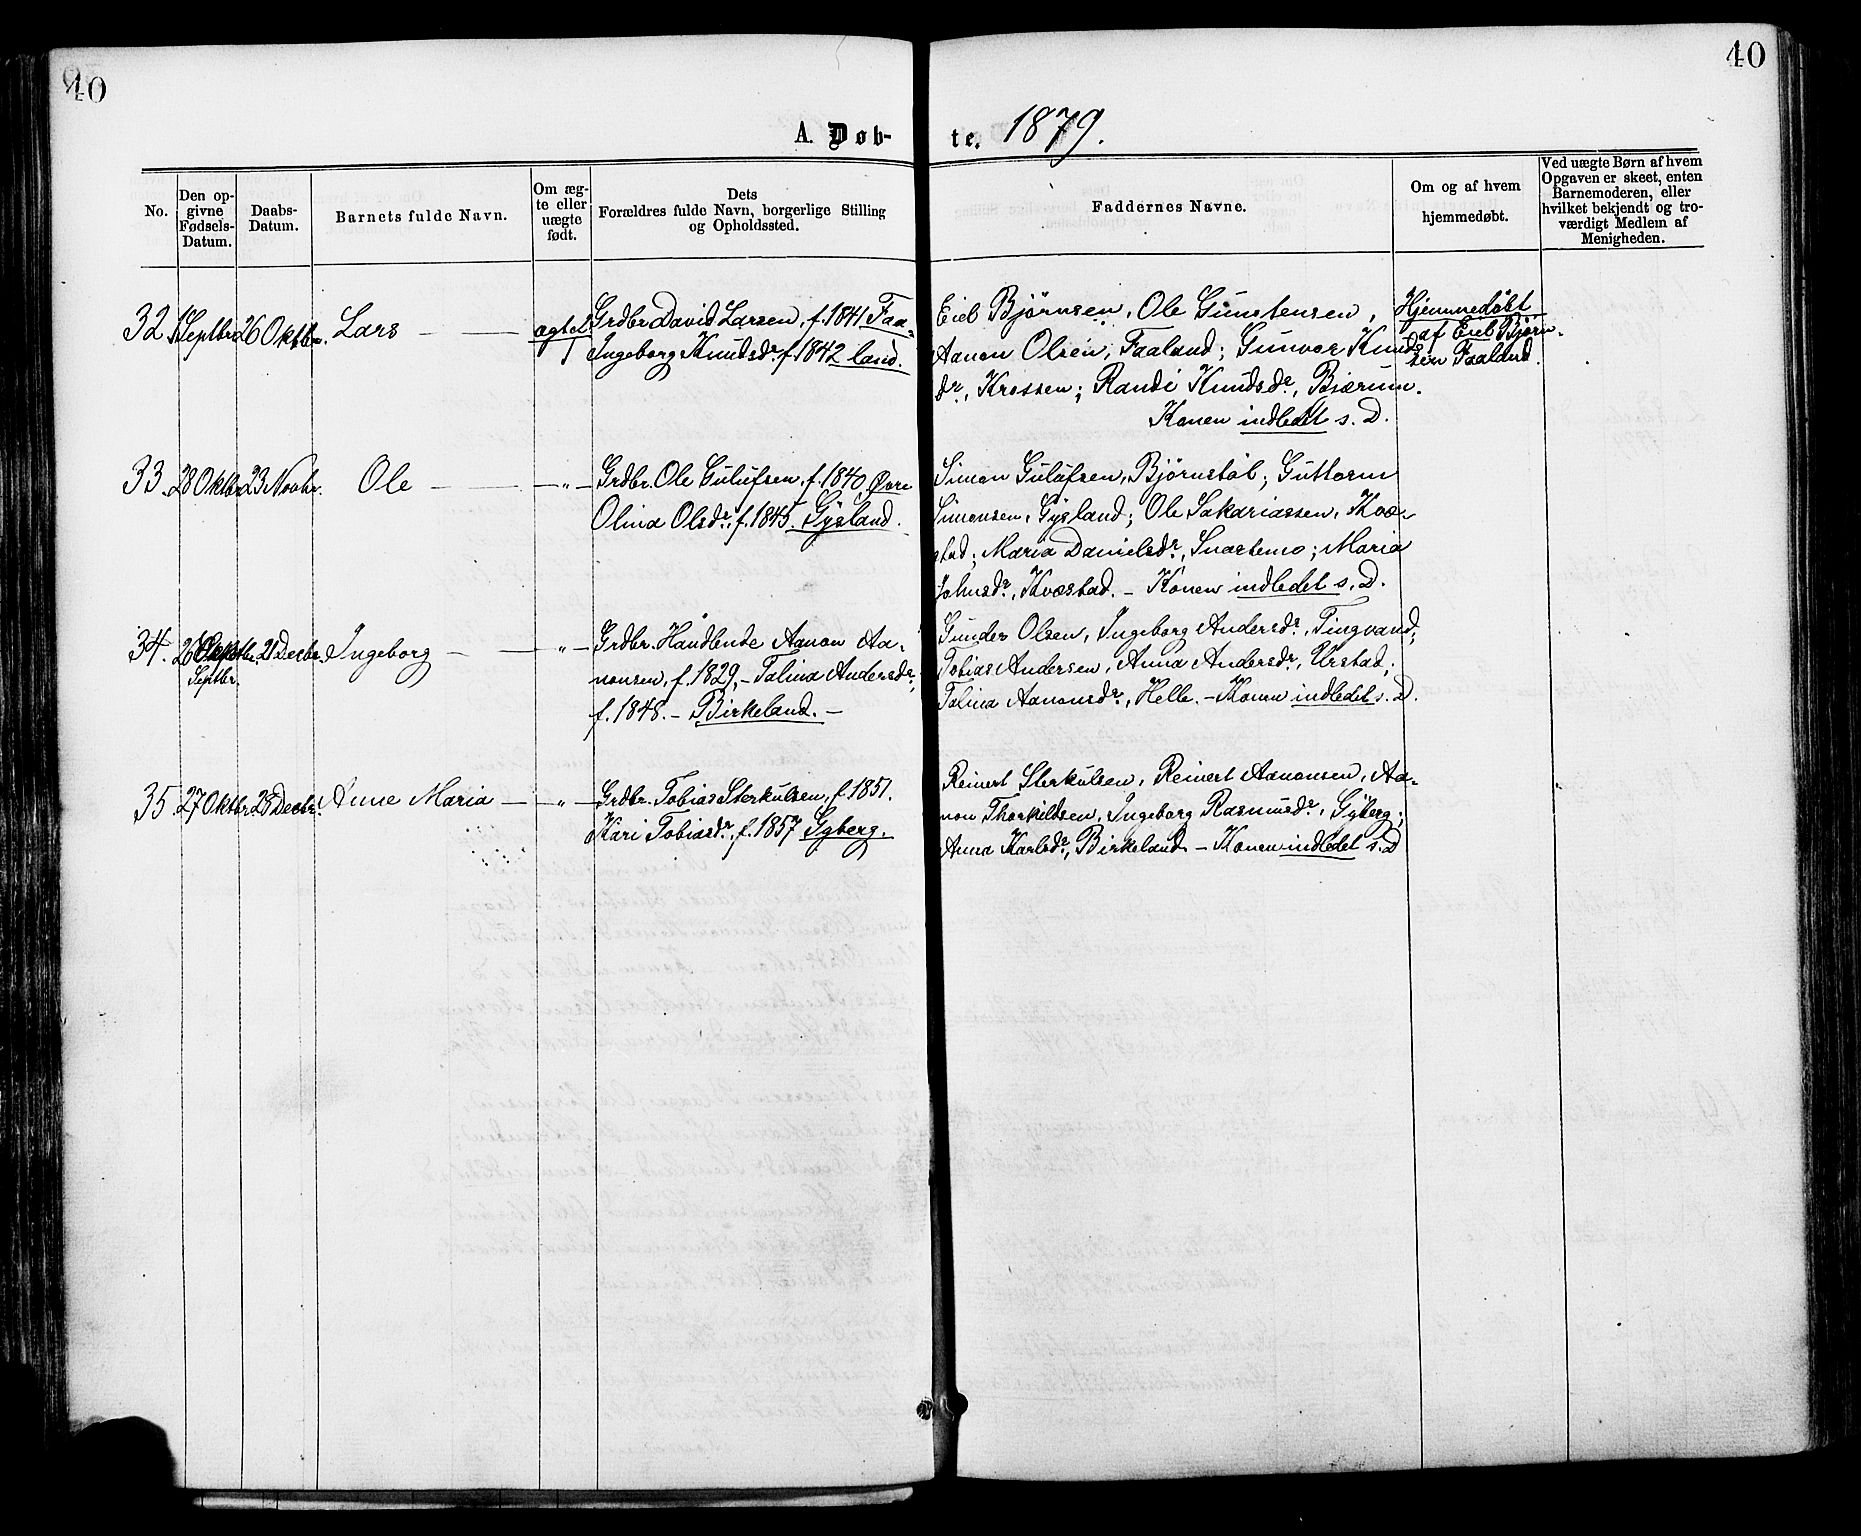 40
40
A. Døb-
te. 1879.
No.
Den op-
givne
Fødsels-
Datum.
Daabs-
Datum.
Barnets fulde Navn.
Om æg-
te eller
uægte
født.
Dets
Forældres fulde Navn, borgerlige Stilling
og Opholdssted.
Faddernes Navne.
Om og af hvem
hjemmedøbt.
Ved uægte Børn af hvem
Opgaven er skeet, enten
Barnemoderen, eller
hvilket bekjendt og tro-
værdigt Medlem af
Menigheden.
32. Septbr. 26 Oktbr. Lars — — ægtef. Grdbr. David Larsen, f. 1841 Faa-
Ingeborg Knudsdr. f. 1842 land.
Eieb Bjørnsen, Ole Gunstensen,
Aanon Olsen, Faaland; Gunvor Knuds
dr., Krossen; Randi Knudsdr., Bjærum.
Konen indledet s. D.
Hjemmedøbt
af Eieb Bjørn-
sen Faaland.
33. 28 Oktbr. 23 Novbr. Ole — — " — Grdbr. Ole Gulufsen, f. 1840, Øvre
Olina Olsdr., f. 1845. Gysland.
Simon Gulufsen, Bjørnstøl; Guttorm
Simonsen, Gysland; Ole Sakariassen, Kvæ-
stad; Maria Danielsdr., Snartemo; Maria
Johnsdr., Kvæstad. — Konen indledet s. D.
34. 26 Septbr. 21 Decbr. Ingeborg — — " — Grdbr. Handlende Aanon Aa-
nonsen, f. 1829, — Talina Andersdr.,
f. 1848. — Birkeland. —
Gunder Olsen, Ingeborg Andersdr., Tingvand;
Tobias Andersen, Anna Andersdr., Urstad;
Talina Aanonsdr., Helle. — Konen indledet s. D.
35. 27 Oktbr. 28 Decbr. Anne Maria — — " — Grdbr. Tobias Sterkulsen, f. 1851.
Kari Tobiasdr., f. 1857 Gyberg.
Reinert Sterkulsen, Reinert Aanonsen, Aa-
non Thorkildsen, Ingeborg Rasmusdr., Gyberg;
Anna Karlsdr., Birkeland — Konen indledet s. D